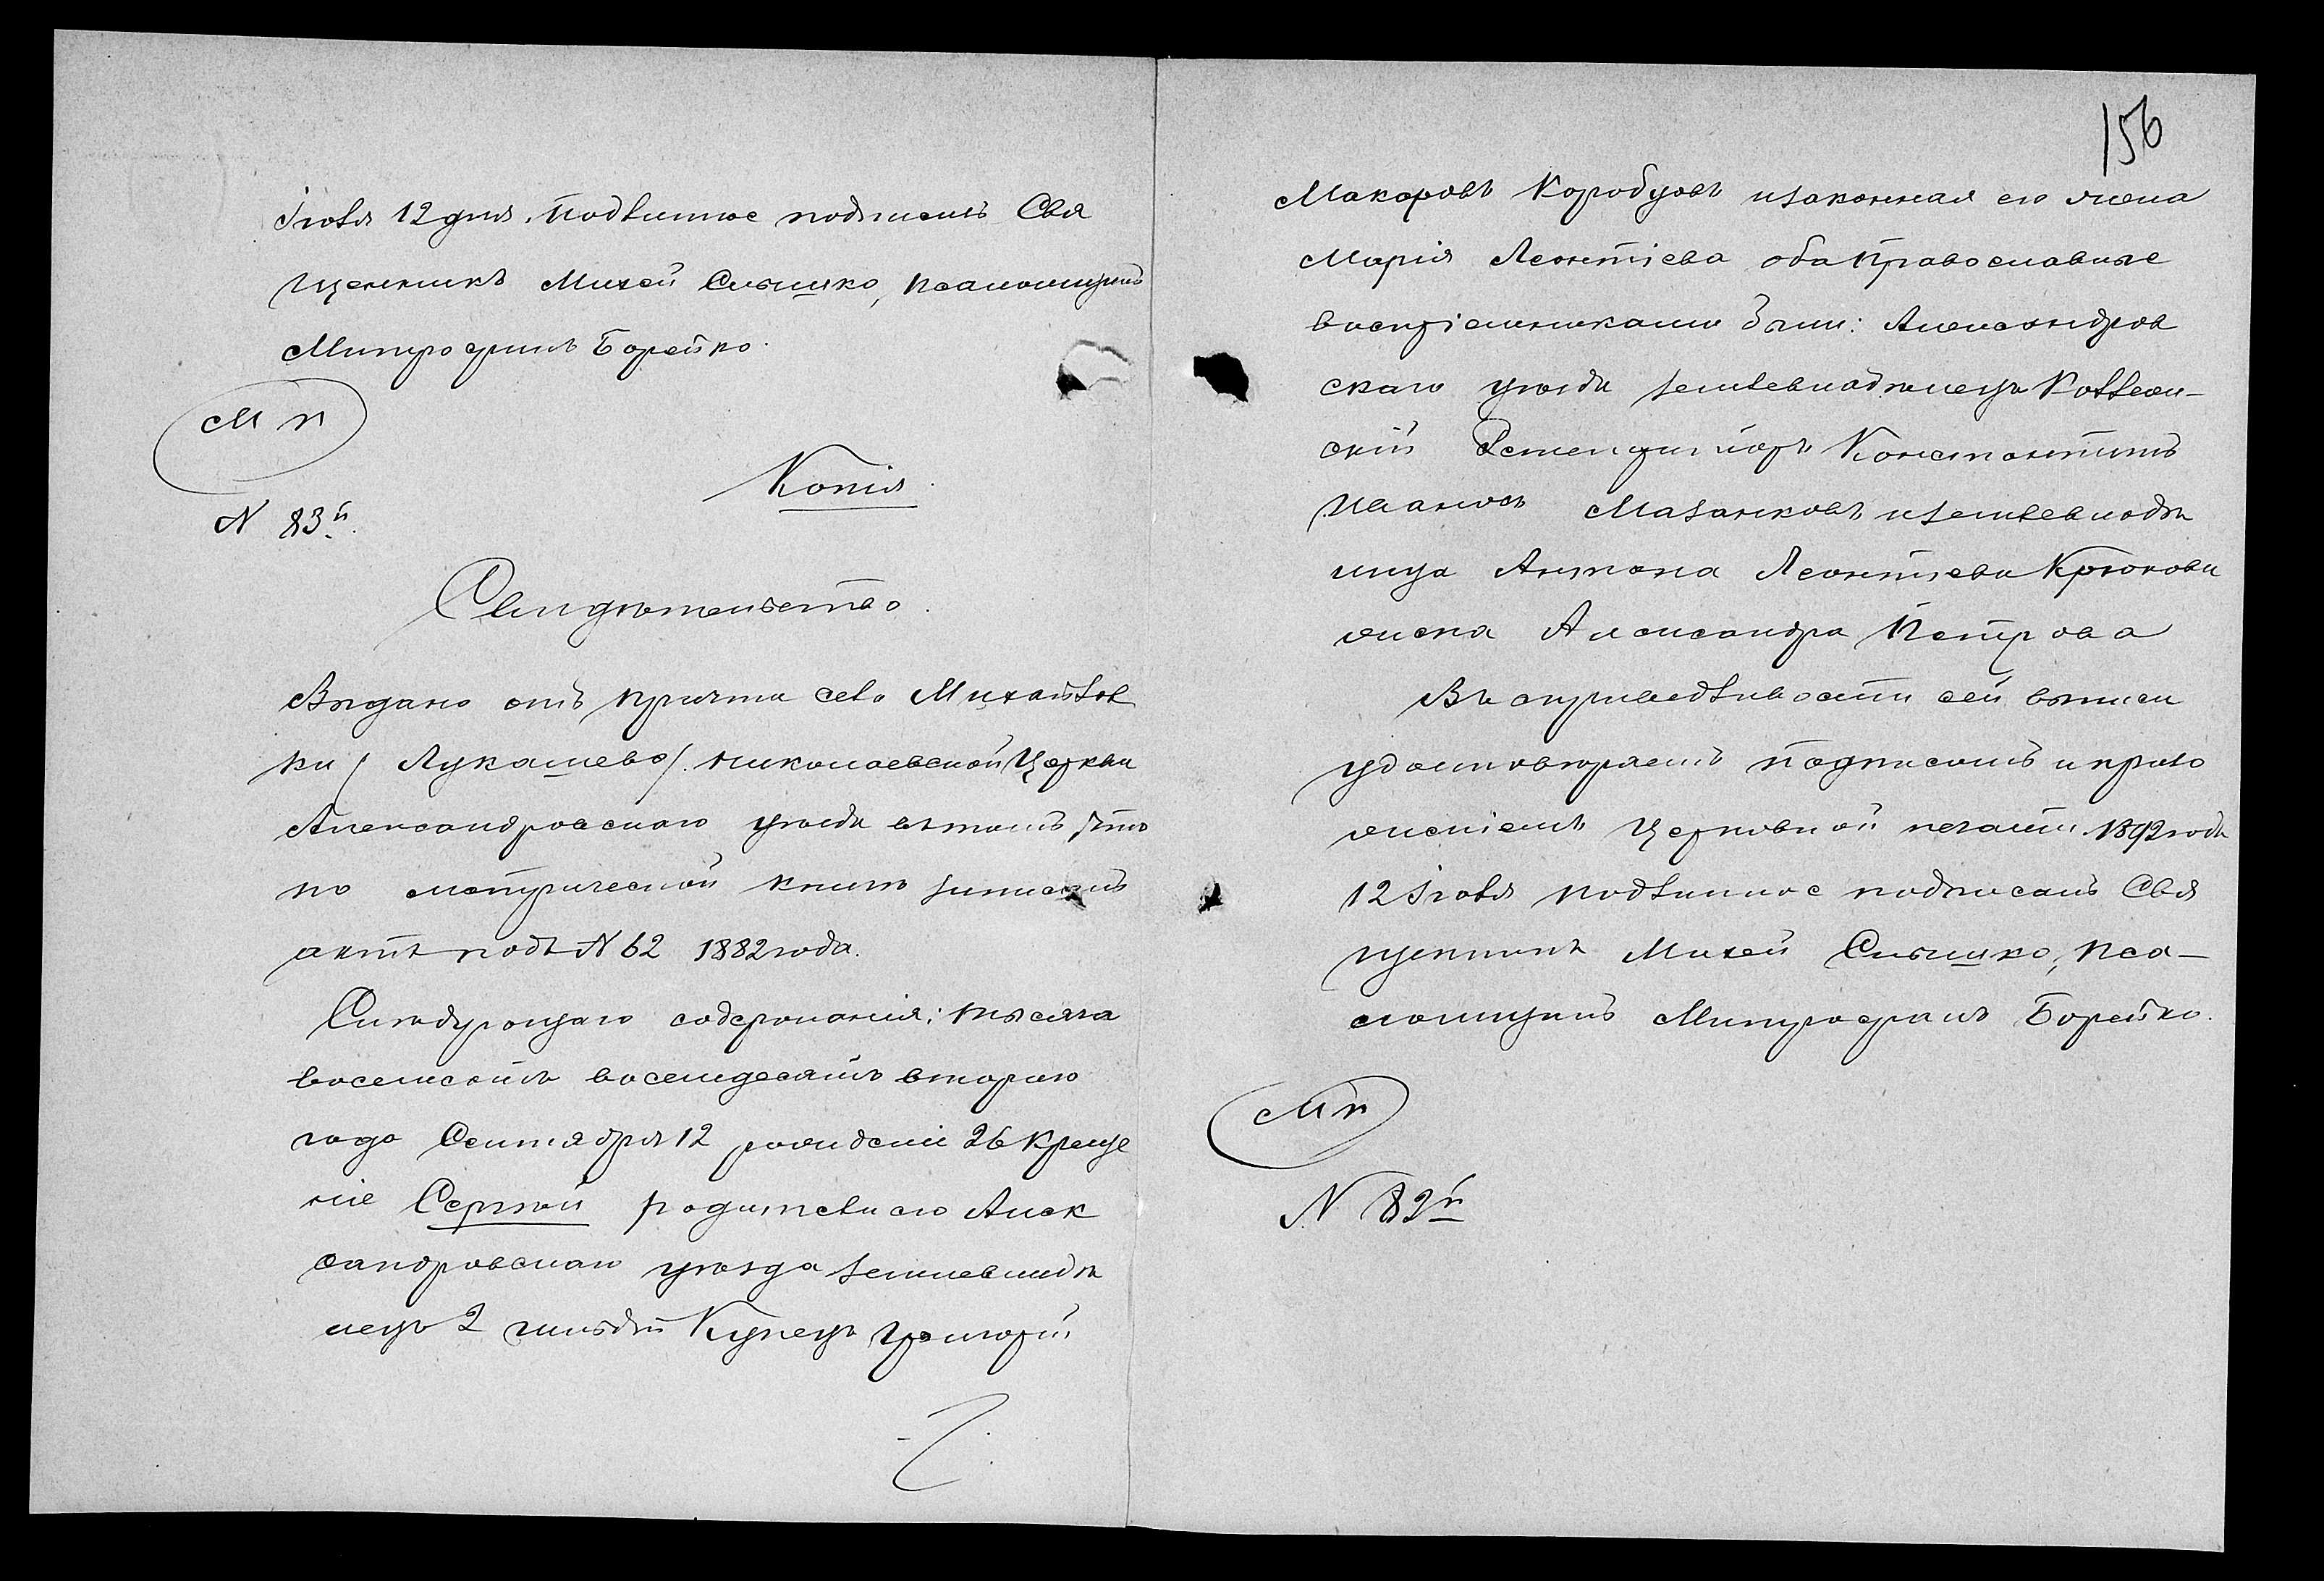 Іюля 12 дня. Подлинное подписалъ Свя
щенникъ Михей Слышко, псаломщикъ
Митрофанъ Борейко.
М п
N 83й.
Копія.
Свидѣтельство.
Выдано отъ причта села Михайлов
ки / Лукашево /. Николаевской Церкви
Александровскаго уѣзда въ томъ, что
по метрической книгѣ записанъ
актъ подъ N 62 1882 года.
Слѣдующаго содержанія: тысяча
восемсотъ восемдесятъ втораго
года Сентября 12 рожденіе 26 креще
ніе Сергѣй родители его Алек
сандровскаго уѣзда землевладѣ
лецъ 2 гильдіи Купецъ Григорій
156
Макаровъ Коробцовъ и законная его жена
Марія Леонтіева оба Православные
воспріемниками были: Александров
скаго уѣзда землевладѣлецъ Коллеж-
скій Регистраторъ Константинъ
Ивановъ Мазанковъ и землевладѣ
лица Антона Леонтіева Крюкова
жена Александра Петрова
Въ справедливости сей выписи
удостовѣряемъ подписомъ и прило
женіемъ Церковной печати. 1892 года
12 Іюля подлинное подписалъ Свя
щенникъ Михей Слышко, Пса-
ломщикъ Митрофанъ Борейко.
М п
N 82й